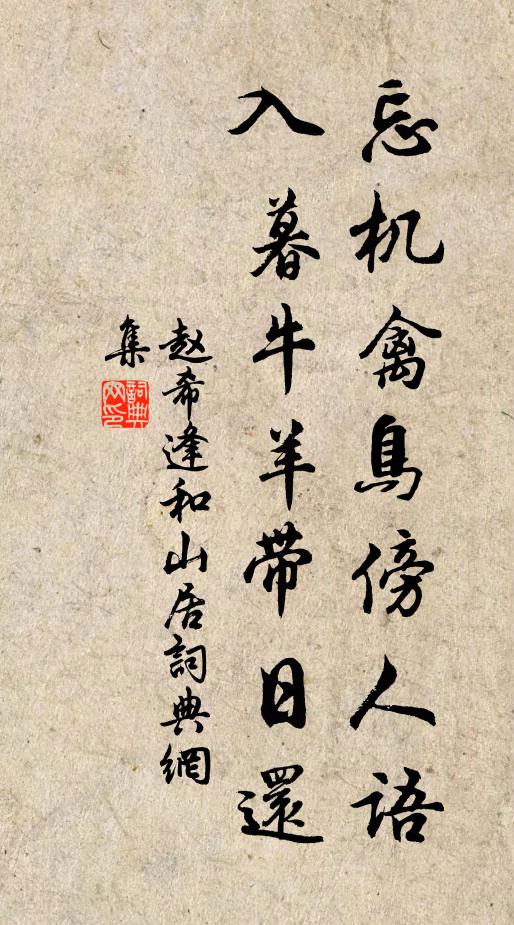 忘机禽鳥傍人语
入暮牛羊带日還
赵希逢和山居詞典網
集
詞典网印